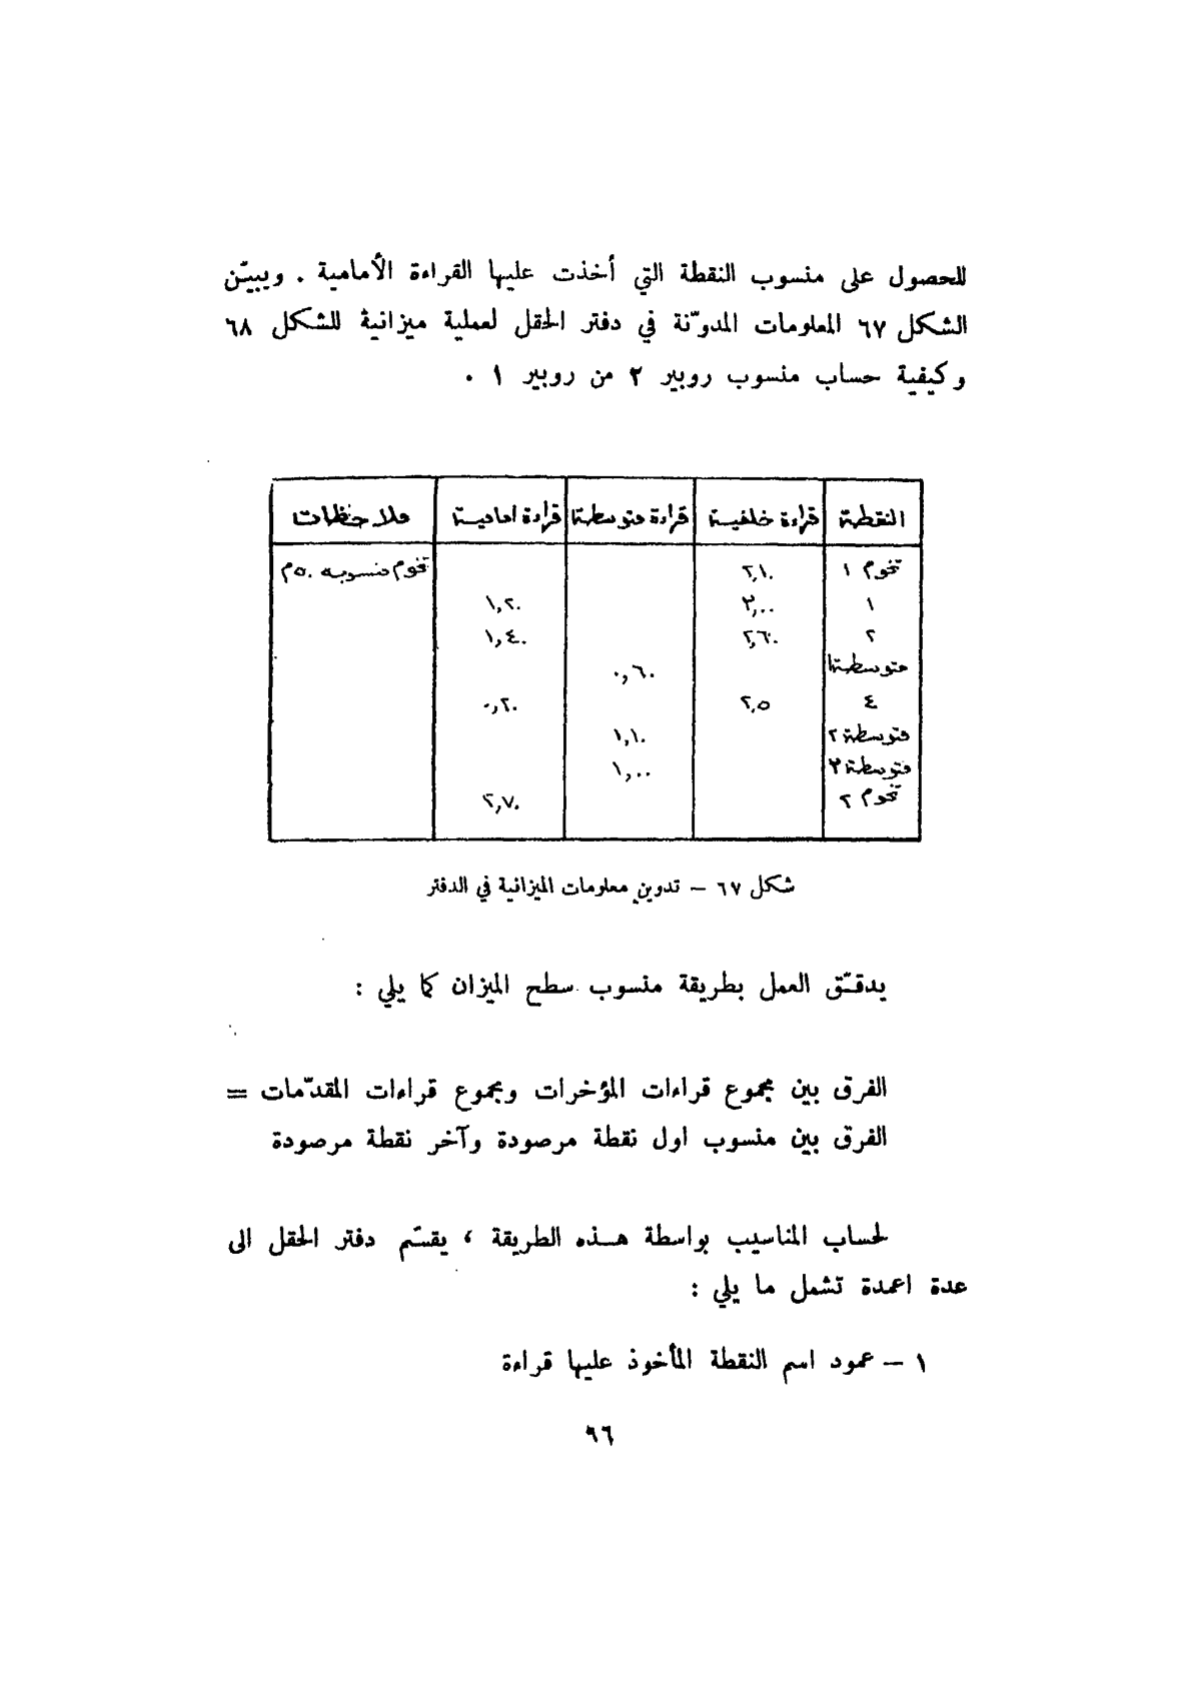 للحصول على منسوب النقطة التي أخذت عليها القراءة الأمامية . ويبيّن
الشكل ٦٧ المعلومات المدوّنة في دفتر الحقل لعملية ميزانية للشكل ٦٨
وكيفية حساب منسوب روبير ٢ من روبير ١ .
النقطة قراءة خلفية قراءة متوسطة قراءة امامية ملاحظات
تخوم ١ ٢,١٠ تخوم منسوبه ٥٠م
١ ٣,٠٠ ١,٢٠
٢ ٢,٦٠ ١,٤٠
متوسطة١ ٠,٦٠
٤ ٢,٥ ٠,٢٠
متوسطة ٢ ١,١٠
متوسطة ٣ ١,٠٠
تخوم ٢ ٢,٧٠
شكل ٦٧ – تدوين معلومات الميزانية في الدفتر
يدقّق العمل بطريقة منسوب سطح الميزان كما يلي :
الفرق بين مجموع قراءات المؤخرات ومجموع قراءات المقدّمات =
الفرق بين منسوب اول نقطة مرصودة وآخر نقطة مرصودة
لحساب المناسيب بواسطة هذه الطريقة ، يقسّم دفتر الحقل الى
عدة اعمدة تشمل ما يلي :
١ – عمود اسم النقطة المأخوذ عليها قراءة
٩٦